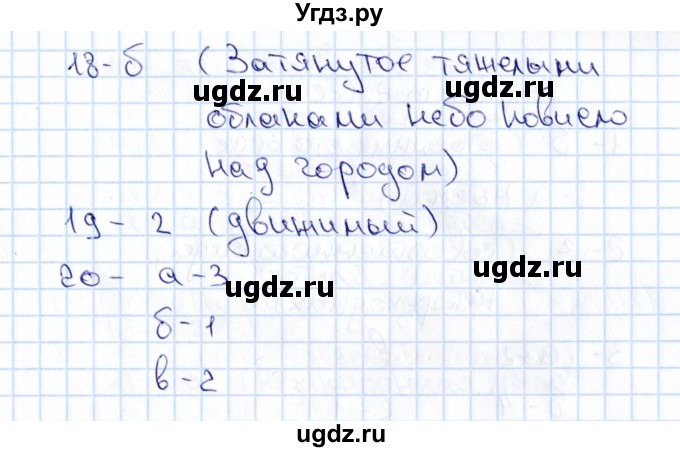 Угдз.ру
18-б (Затянутое тяжелыми
ugdz.ru ugdz.ru
облаками небо повисло
над городом)
19 - 2 (движимый)
20 - а - 3
ugdz.ru ugdz.ru
б - 1
в - 2
ugdz.ru